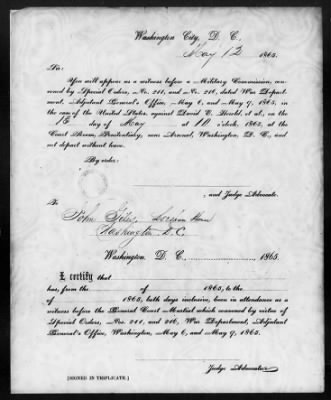 Washington City, D. C.
May 12 1865.
To:
You will appear as a witness before a Military Commission, con-
vened by Special Orders, No. 211, and No. 216, dated War Depart-
ment, Adjutant General's Office, May 6, and May 9, 1865, in
the case of the United States, against David E. Herold, et al., on
the 15 day of May at 10 o'clock, 1865, at the
Court Room, Penitentiary, near Arsenal, Washington, D. C., and
not depart without leave.
By order:
, and Judge Advocate.
To
John
Washington D.C.
Washington, D. C., 1865.
I certify that
has, from the of 1865, to the
of 1865, both days inclusive, been in attendance as a
witness before the General Court Martial which convened by virtue of
Special Orders, No. 211, and 216, War Department, Adjutant
General's Office, Washington, May 6, and May 9, 1865.
Judge Advocate.
[SIGNED IN TRIPLICATE.]